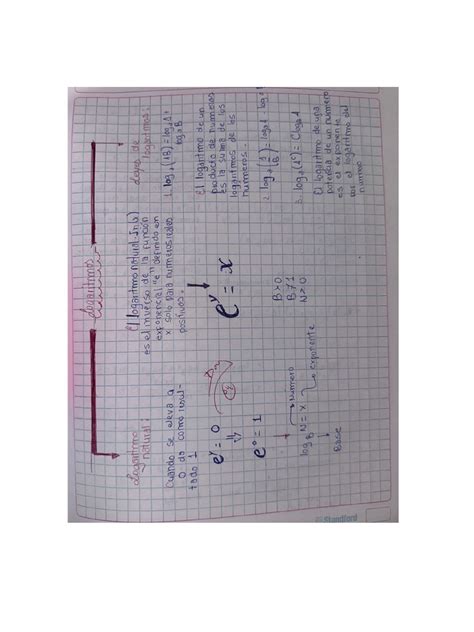 Logaritmos
Logaritmo
natural:
Cuando se eleva a
0 da como resul-
tado 1
e^y = 0
⇓
e^0 = 1
El logaritmo natural (ln x)
es el inverso de la función
exponencial "e" definido en
x solo para numeros reales
positivos.
e^y = x
log_B N = x
→ Numero
→ exponente
Base
B > 0
B ≠ 1
N > 0
logaritmos:
1. log_a (AB) = log_a A +
log_a B
El logaritmo de un
producto de numeros
es la suma de los
logaritmos de los
numeros.
2. log_a (A/B) = log_a A - log_a B
3. log_a (A^c) = C log_a A
El logaritmo de una
potencia de un numero
es el exponente
por el logaritmo del
numero
Standford